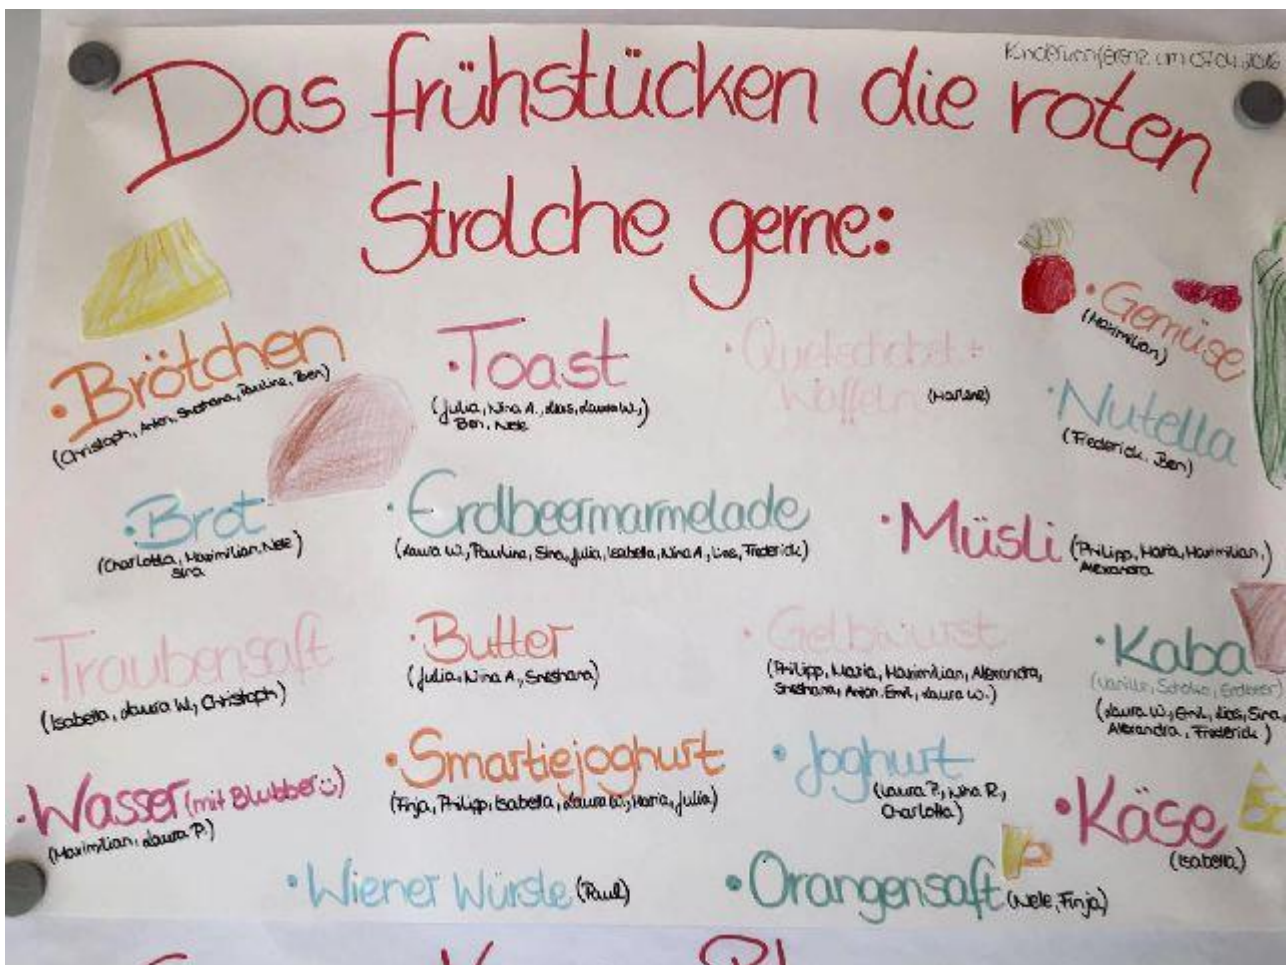 Kinderkonferenz am 07.04.2016
Das frühstücken die roten
Strolche gerne:
• Brötchen
(Christoph, Anton, Snezhana, Pauline, Ben)
• Toast
(Julia, Nina A., Lias, Laura W.,)
Ben, Nele
• Quetschobst +
Waffeln (Marlene)
• Gemüse
(Maximilian)
• Nutella
(Frederick, Ben)
• Brot
(Charlotta, Maximilian, Nele)
Sina
• Erdbeermarmelade
(Laura W., Pauline, Sina, Julia, Isabella, Nina A., Lias, Frederick)
• Müsli (Philipp, Maria, Maximilian,)
Alexandra
• Traubensaft
(Isabella, Laura W., Christoph)
• Butter
(Julia, Nina A., Snezhana)
• Gelbwurst
(Philipp, Maria, Maximilian, Alexandra,
Snezhana, Anton, Emil, Laura W.)
• Kaba
(Vanille, Schoko, Erdbeer)
(Laura W., Emil, Lias, Sina,
Alexandra, Frederick)
• Wasser (mit Blubber)
(Maximilian, Laura P.)
• Smartiejoghurt
(Finja, Philipp, Isabella, Laura W., Maria, Julia)
• Joghurt
(Laura P., Nina R.,
Charlotta)
• Käse
(Isabella)
• Wiener Würstle (Paul)
• Orangensaft (Nele, Finja)